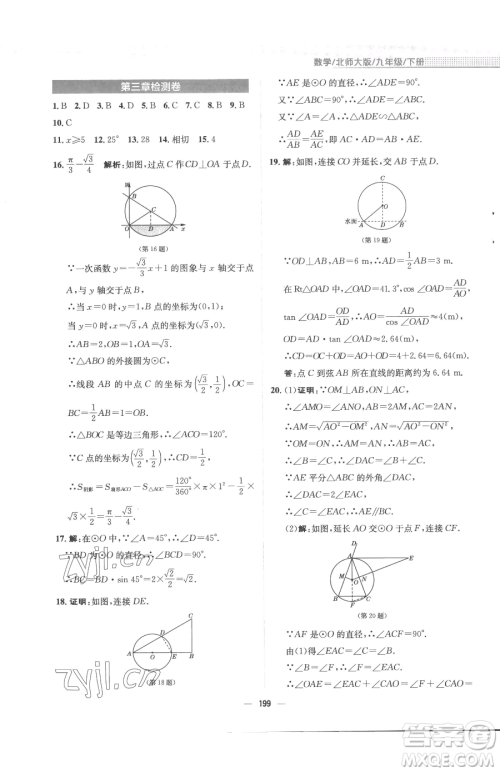 数学/北师大版/九年级/下册
第三章检测卷
1. B 2. D 3. B 4. D 5. B 6. D 7. D 8. B
9. B 10. B
11. x≥5 12. 25° 13. 28 14. 相切 15. 4
16. π/3－√3/4 解析:如图,过点C作CD⊥OA于点D.
y
B
C
O
D
A
x
(第16题)
∵一次函数y=－√3/3x+1的图象与x轴交于
点A,与y轴交于点B,
∴当x=0时,y=1,则点B的坐标为(0,1);
当y=0时,x=√3,则点A的坐标为(√3,0).
∴AB=2.
∵△ABO的外接圆为⊙C,
∴线段AB的中点C的坐标为(√3/2,1/2),OC=
BC=1/2AB=1=OB.
∴△BOC是等边三角形,∴∠OCA=120°.
∵C点的坐标为(√3/2,1/2),∴CD=1/2.
∴S阴影=S扇形ACO－S△AOC=120°/360°×π×1²－1/2×
√3×1/2=π/3－√3/4.
17. 解:在⊙O中,∵∠A=45°,∴∠D=45°.
∵BD为⊙O的直径,∴∠BCD=90°.
∴BC=BD·sin 45°=2×√2/2=√2.
18. 证明:如图,连接DE.
C
D
A
O
E
B
(第18题)
∵AE是⊙O的直径,∴∠ADE=90°.
又∵∠ABC=90°,∴∠ADE=∠ABC.
又∵∠DAE=∠BAC,∴△ADE∽△ABC.
∴AD/AB=AE/AC,即AC·AD=AB·AE.
19. 解:如图,连接CO并延长,交AB于点D.
C
O
水面
A
D
B
(第19题)
∵OD⊥AB,AB=6 m,∴AD=1/2AB=3 m.
在Rt△OAD中,∵∠OAB=41.3°,cos∠OAD=AD/AO,
tan∠OAD=OD/AD,∴AO=AD/cos∠OAD≈4(m).
∴OD=AD·tan∠OAD≈2.64(m).
∴CD=CO+OD=AO+OD≈4+2.64=6.64(m).
答:点C到弦AB所在直线的距离约为6.64 m.
20. (1)证明:∵OM⊥AB,ON⊥AC,
∴∠AMO=∠ANO=90°.
∴AM=√(AO²－OM²),AN=√(AO²－ON²).
∵OM=ON,AO=AO,∴AM=AN.
∴∠OAM=∠OAN.
∵AE平分△ABC的外角∠DAC,
∴∠DAE=∠CAE.
∴∠OAE=1/2×180°=90°.∴AO⊥AE.
(2)解:如图,延长AO交⊙O于点F,连接CF.
D
A
E
M
N
O
B
C
F
(第20题)
∵AF是⊙O的直径,∴∠ACF=90°.
由(1)得∠OAE=90°,∴∠ACF=∠OAE.
199